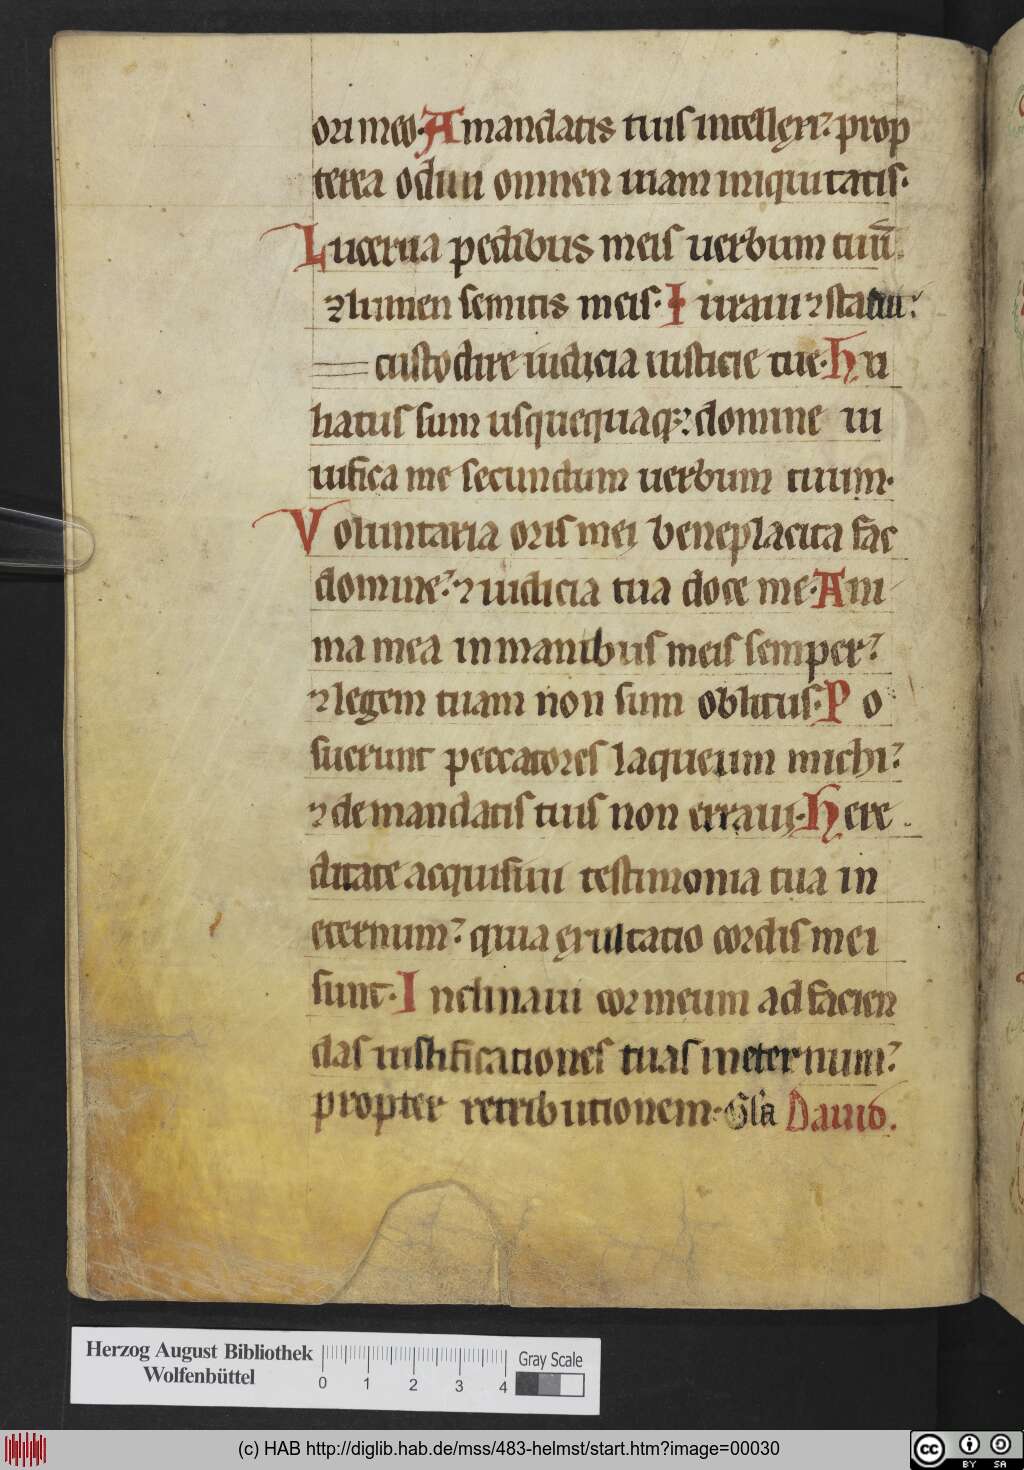 ori meo. A mandatis tuis intellexi: prop
terea odiui omnem uiam iniquitatis.
Lucerna pedibus meis uerbum tuū.
⁊ lumen semitis meis. Iuraui ⁊ statui:
custodire iudicia iusticie tue. Hu
hatus sum usquequaq: domine ui
uifica me secundum uerbum tuum.
Voluntaria oris mei beneplacita fac
domine: ⁊ iudicia tua doce me. Ani
ma mea in manibus meis semper:
⁊ legem tuam non sum oblitus. Po
suerunt peccatores laqueum michi:
⁊ de mandatis tuis non erraui. Here
ditate acquisiui testimonia tua in
eternum: quia exultatio cordis mei
sunt. Inclinaui cor meum ad facien
das iustificationes tuas in eternum:
propter retributionem. Gl'a Dauid.
Herzog August Bibliothek
Wolfenbüttel
0 1 2 3 4
Gray Scale
(c) HAB http://diglib.hab.de/mss/483-helmst/start.htm?image=00030
cc BY SA